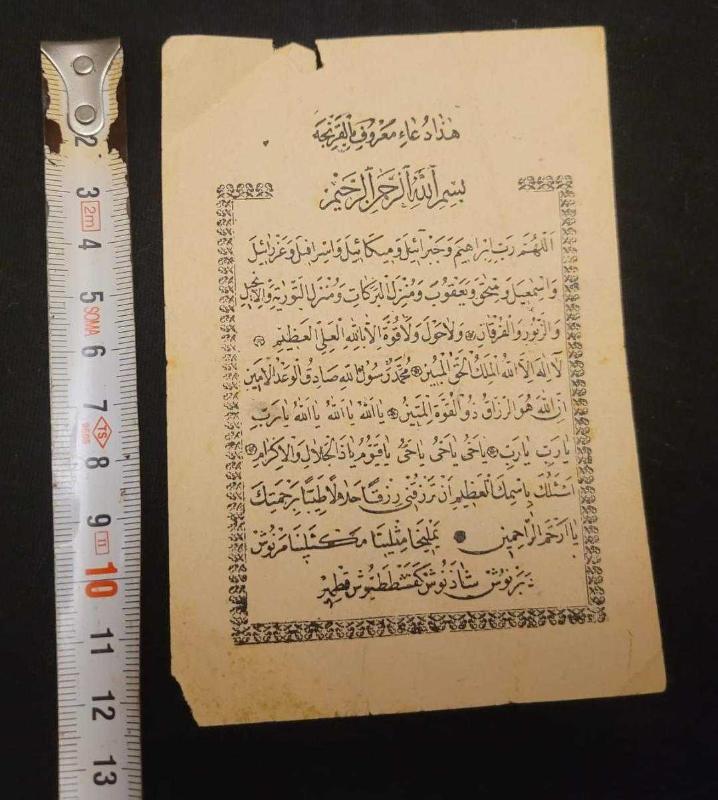 هذا دعاء معروف بالقرنجه
بسم الله الرحمن الرحيم
اللهم رب ابراهيم وجبرائيل وميكائيل واسرافيل وعزرائيل
واسمعيل واسحق ويعقوب ومنزل البركات ومنزل التورية والانجيل
والزبور والفرقان ولاحول ولاقوة الا بالله العلى العظيم
لا اله الا الله الملك الحق المبين محمد رسول الله صادق الوعد الامين
ان الله هو الرزاق ذو القوة المتين يا الله يا الله يا الله يارب
يارب يارب ياحى ياحى ياحى ياقيوم ياذالجلال والاكرام
اسئلك باسمك العظيم ان ترزقنى رزقا حلالا طيبا برحمتك
يا ارحم الراحمين يمليخا مثلينا مكثلينا مرنوش
دبرنوش شاذنوش كفشططيوش قطمير
2
3
2m
4
5
SOMA
6
7
TS
8
9
II
10
11
12
13